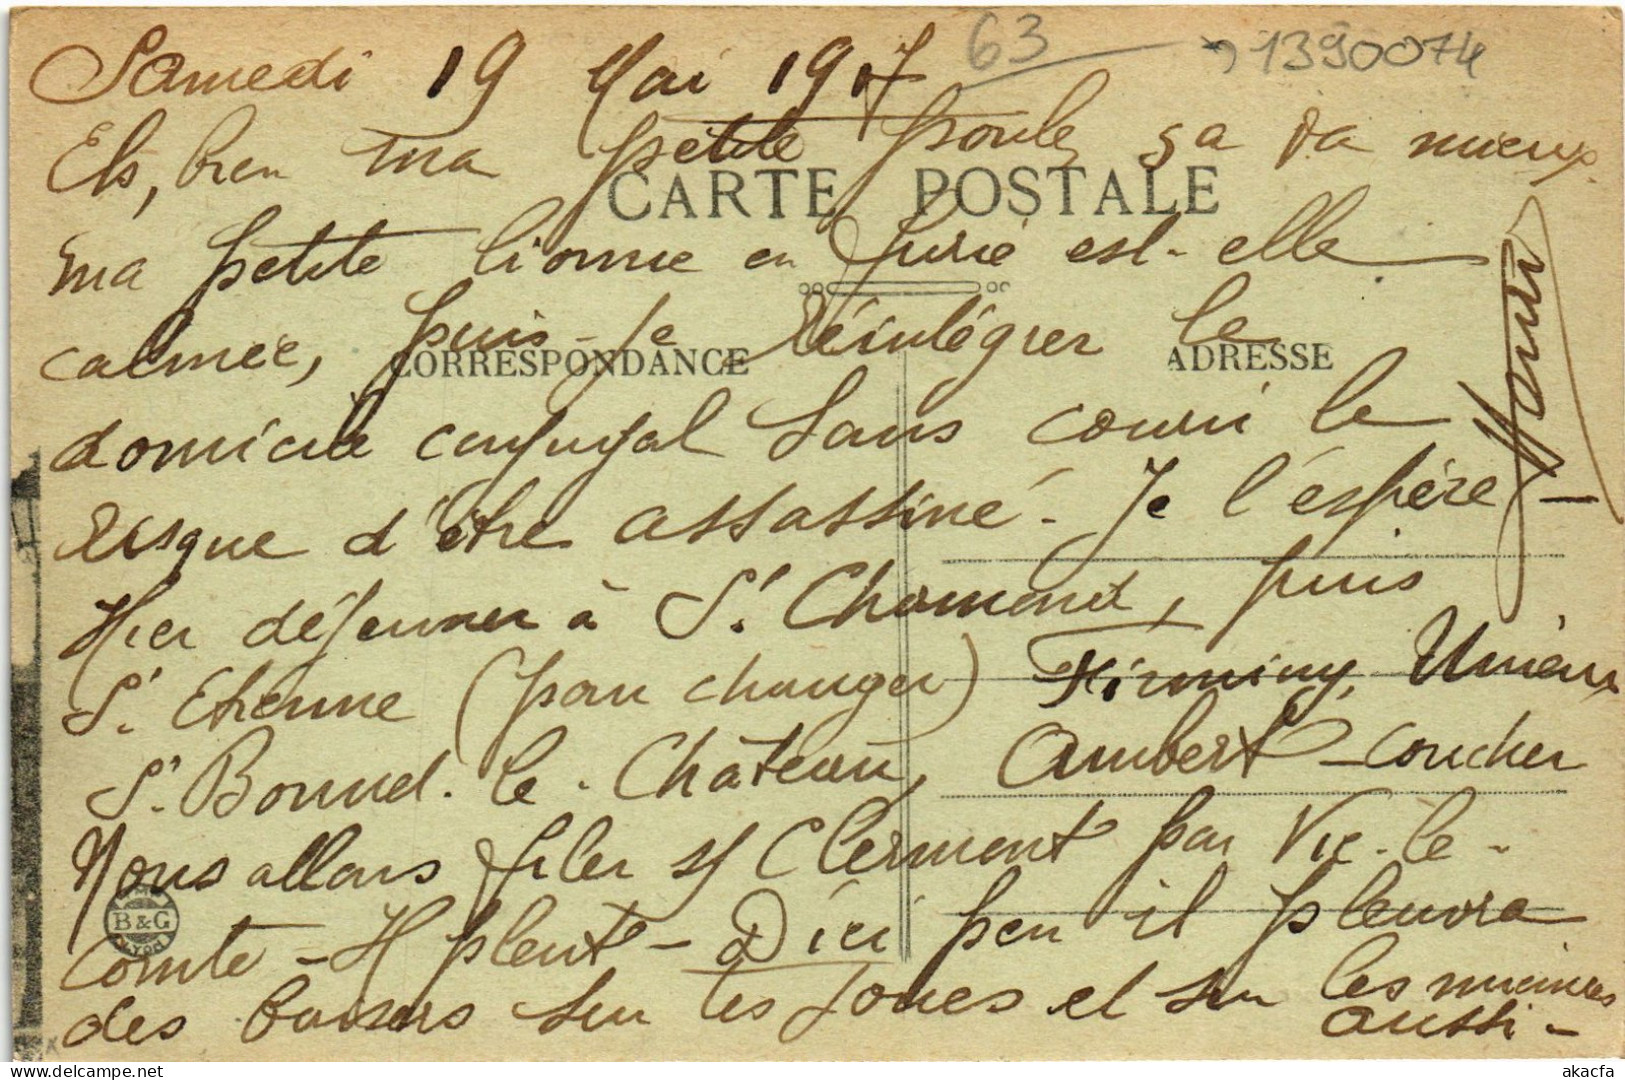 63 → 1390074
Samedi 19 Mai 1917
Eh, bien ma petite poule, ça va mieux.
CARTE POSTALE
ma petite lionne en furie est-elle
calmée, puis-je réintégrer le
CORRESPONDANCE ADRESSE
domicile conjugal sans courir le
risque d'être assassiné. Je l'espère
Hier déjeuner à St Chamond, puis
St Etienne (pour changer) Firminy, Unieux
St. Bonnet-le-Château, Ambert - coucher
Nous allons filer s/ Clermont par Vic-le-
B&G
comte - Il pleut - D'ici peu il pleuvra
des baisers sur tes joues et sur les miennes
aussi -
akacfa
delcampe.net